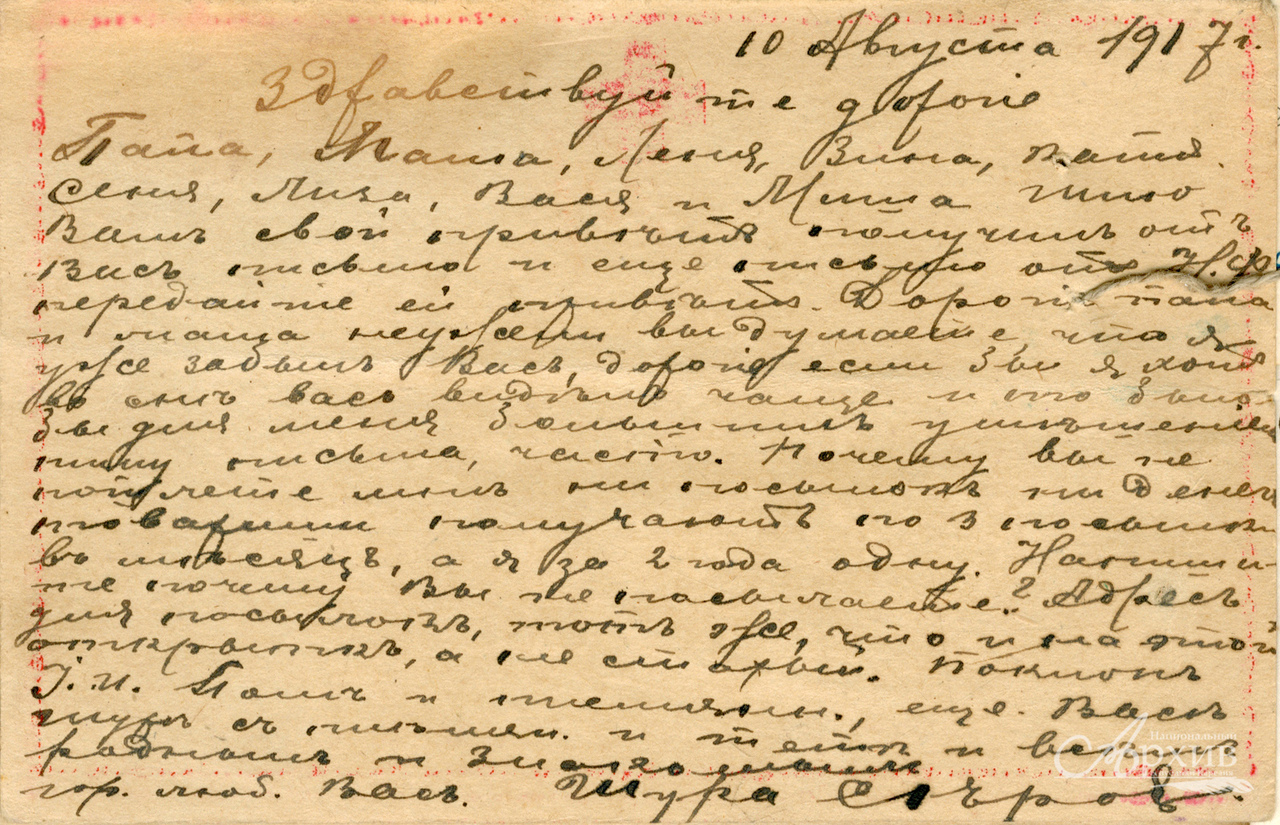 10 Августа 1917 г.
Здравствуйте дорогие
Папа, Мама, Леня, Зина, Катя
Сеня, Лиза, Вася и Миша шлю
Вамъ свой привѣтъ получилъ отъ
Васъ письмо и еще письмо отъ Н.Ф.
передайте ей привѣтъ. Дорогіе папа
и мама неужели вы думаете, что я
уже забылъ Васъ, дорогіе если бы я хотя
во снѣ васъ видѣлъ чаще и то было
бы для меня большимъ утѣшеніем
пишу письма, часто. Почему вы не
пошлете мнѣ ни посылокъ ни денегъ
товарищи получаютъ по 3 посылки
въ мѣсяцъ, а я за 2 года одну. Напиши-
те почему Вы не посылаете? Адресъ
для посылокъ, тотъ же, что и на этой
открыткѣ, а не старый. Поклонъ
и
съ и тетѣ и всѣмъ
роднымъ и знакомымъ
гор. люб. Васъ. Шура Сѣровъ.
Национальный
Архив